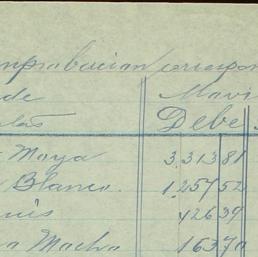 mprobacion correspon
de Movi
Debe
Maya 3.313 81
Blanco. 1.257 52
uis 426 39
a Macho 163 70